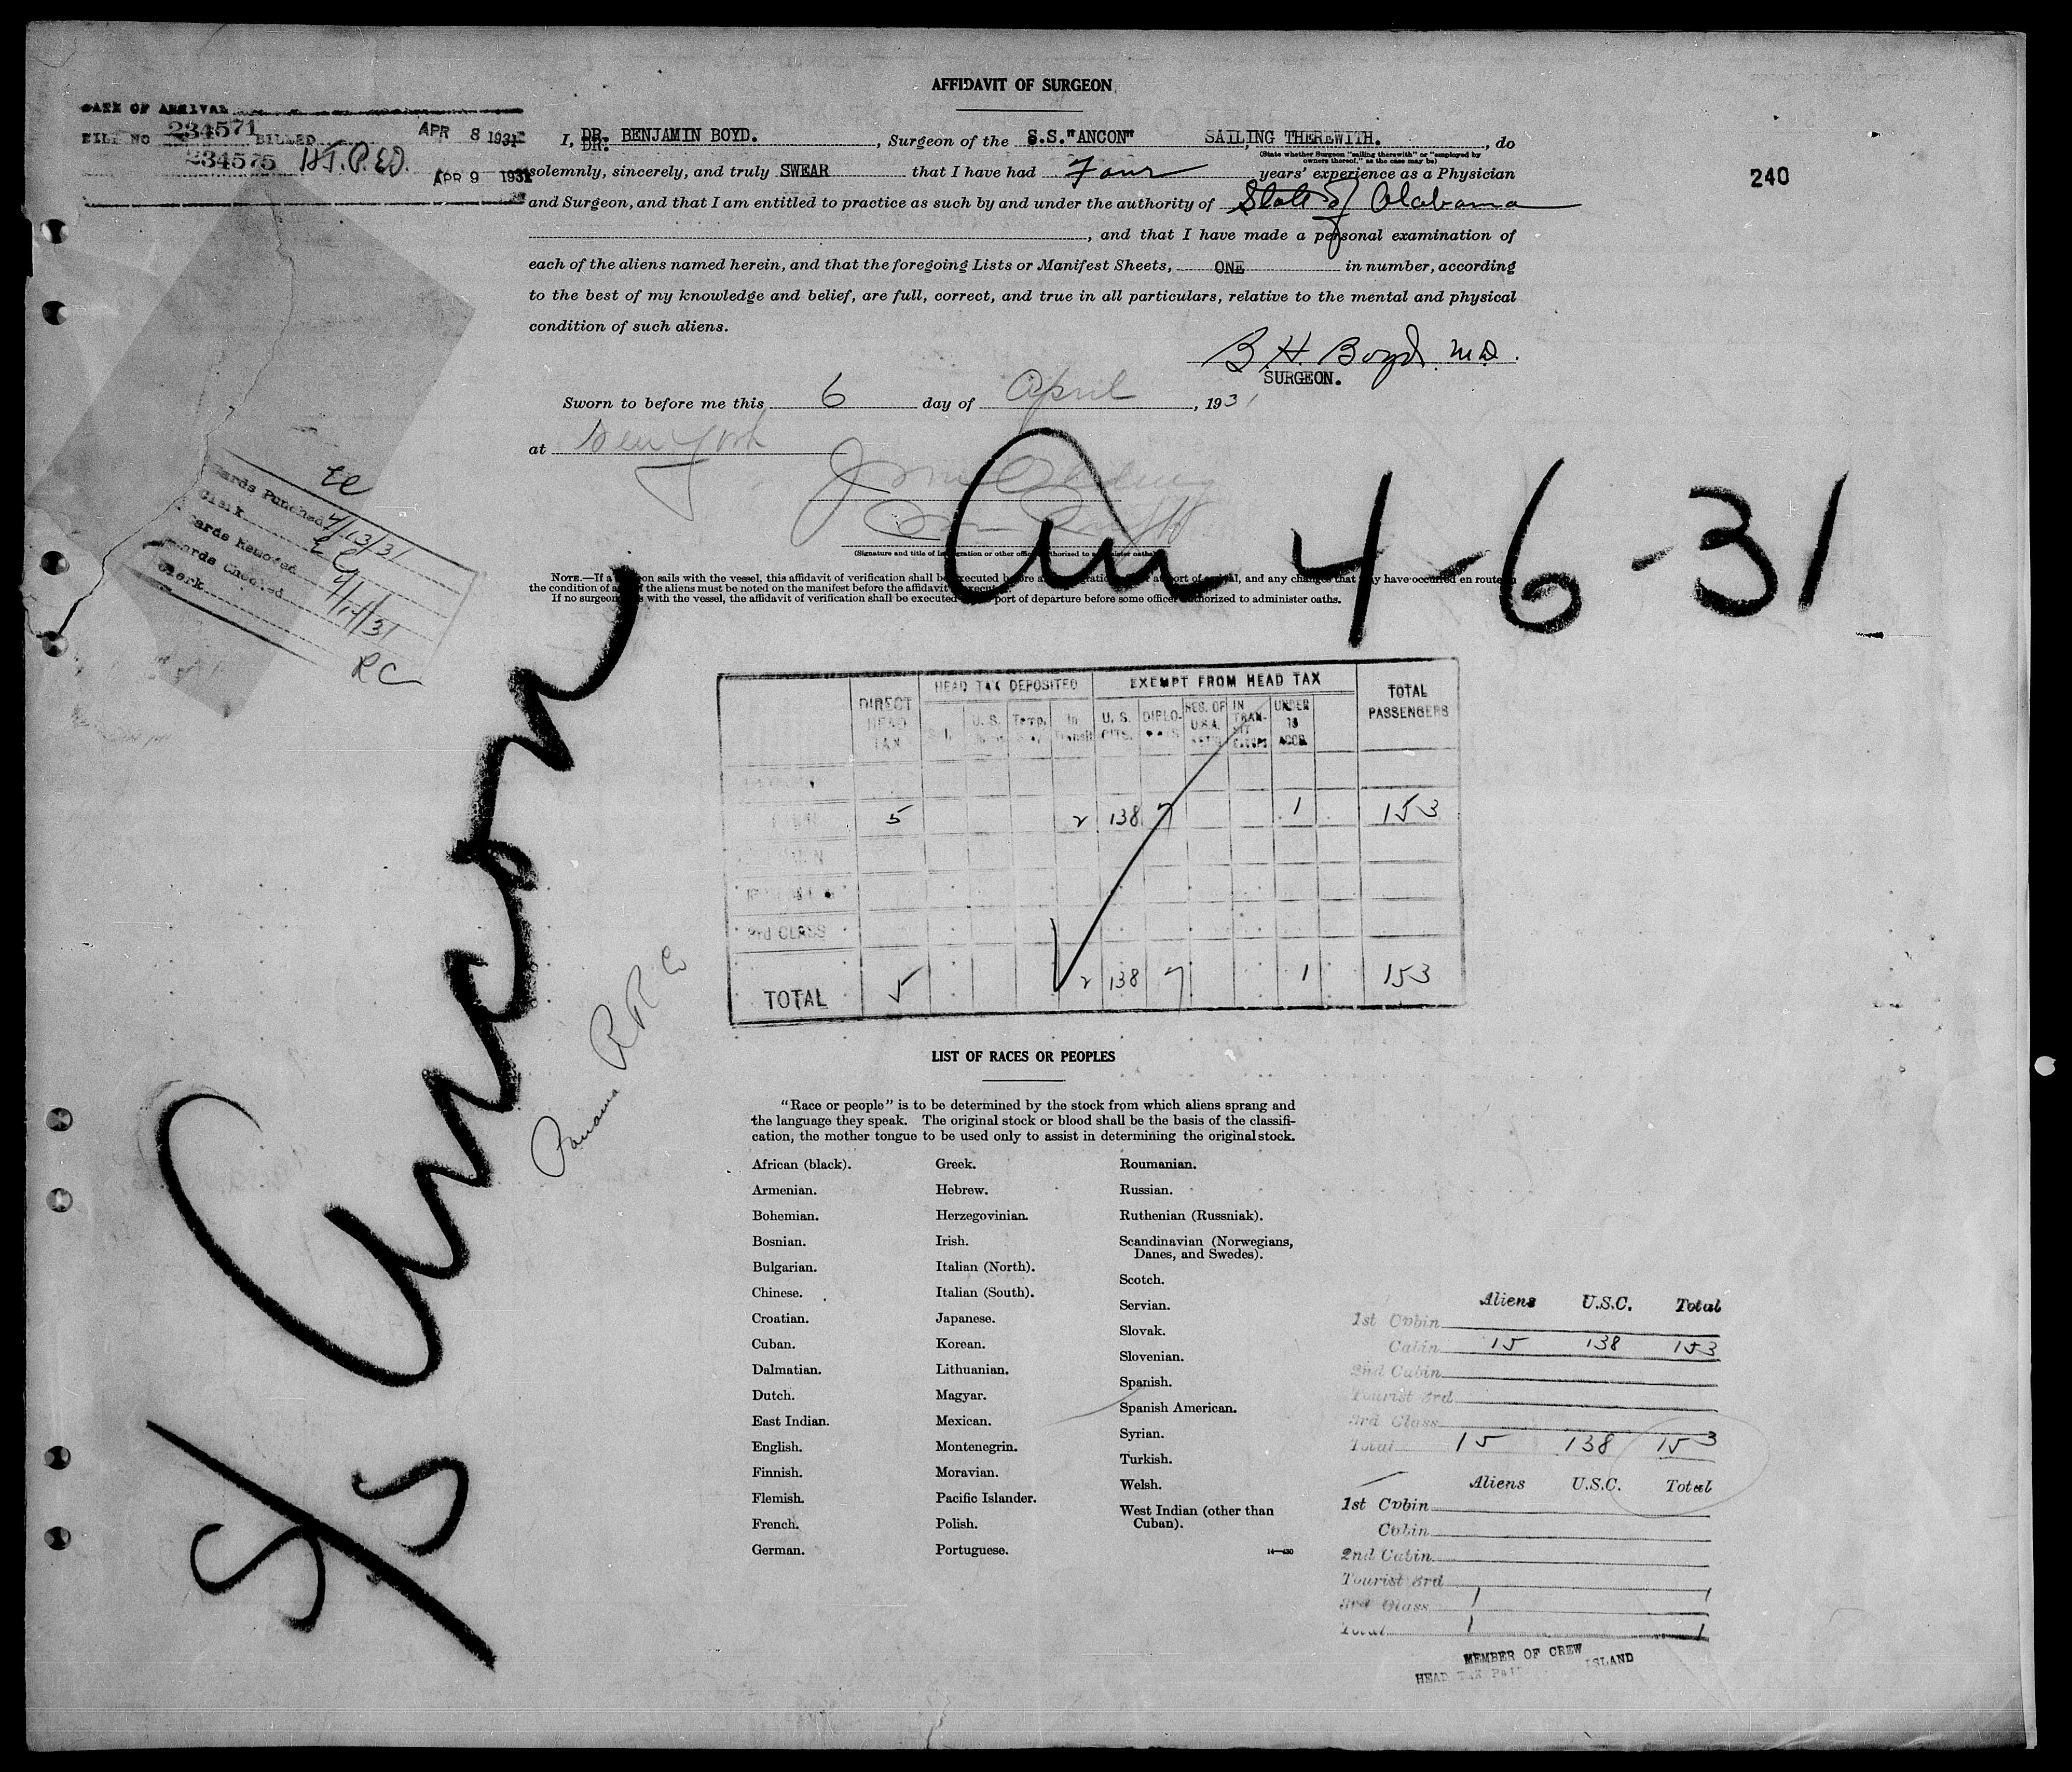 AFFIDAVIT OF SURGEON
DATE OF ARRIVAL
FILE NO 234571 BILLED APR 8 1931
234575 APR 9 1931
240
I, DR. BENJAMIN BOYD. , Surgeon of the S.S."ANCON" SAILING THEREWITH. , do
DR.
(State whether Surgeon "sailing therewith" or "employed by
owners thereof," as the case may be)
solemnly, sincerely, and truly SWEAR that I have had Four years' experience as a Physician
and Surgeon, and that I am entitled to practice as such by and under the authority of State of Alabama
, and that I have made a personal examination of
each of the aliens named herein, and that the foregoing Lists or Manifest Sheets, ONE in number, according
to the best of my knowledge and belief, are full, correct, and true in all particulars, relative to the mental and physical
condition of such aliens.
B.H. Boyd. M.D.
SURGEON.
Sworn to before me this 6 day of April , 1931
at New York
(Signature and title of immigration or other officer authorized to administer oaths)
Arr 4-6-31
EC
Cards Punched 4/13/31
Clerk EC
Cards Removed
Records Checked 4/14/31
Clerk RC
NOTE.—If a surgeon sails with the vessel, this affidavit of verification shall be executed before an immigration officer at port of arrival, and any changes that may have occurred en route in
the condition of any of the aliens must be noted on the manifest before the affidavit is executed.
If no surgeon sails with the vessel, the affidavit of verification shall be executed at port of departure before some officer authorized to administer oaths.
S/S Ancon
Panama RR Co
DIRECT HEAD TAX HEAD TAX DEPOSITED EXEMPT FROM HEAD TAX TOTAL PASSENGERS
U. S. Temp. In Transit U. S. CITS. DIPLOMATS RES. OF U.S.A. IN TRANSIT UNDER 16 ACCR.
5 2 138 7 1 153
3rd CLASS
TOTAL 5 2 138 7 1 153
LIST OF RACES OR PEOPLES
"Race or people" is to be determined by the stock from which aliens sprang and
the language they speak. The original stock or blood shall be the basis of the classifi-
cation, the mother tongue to be used only to assist in determining the original stock.
African (black).
Armenian.
Bohemian.
Bosnian.
Bulgarian.
Chinese.
Croatian.
Cuban.
Dalmatian.
Dutch.
East Indian.
English.
Finnish.
Flemish.
French.
German.
Greek.
Hebrew.
Herzegovinian.
Irish.
Italian (North).
Italian (South).
Japanese.
Korean.
Lithuanian.
Magyar.
Mexican.
Montenegrin.
Moravian.
Pacific Islander.
Polish.
Portuguese.
Roumanian.
Russian.
Ruthenian (Russniak).
Scandinavian (Norwegians,
Danes, and Swedes).
Scotch.
Servian.
Slovak.
Slovenian.
Spanish.
Spanish American.
Syrian.
Turkish.
Welsh.
West Indian (other than
Cuban).
Aliens U.S.C. Total
1st Cabin
Cabin 15 138 153
2nd Cabin
Tourist 3rd
3rd Class
Total 15 138 153
Aliens U.S.C. Total
1st Cabin
Cabin
2nd Cabin
Tourist 3rd
3rd Class 1 1
Total 1 1
MEMBER OF CREW
HEAD TAX PAID ISLAND